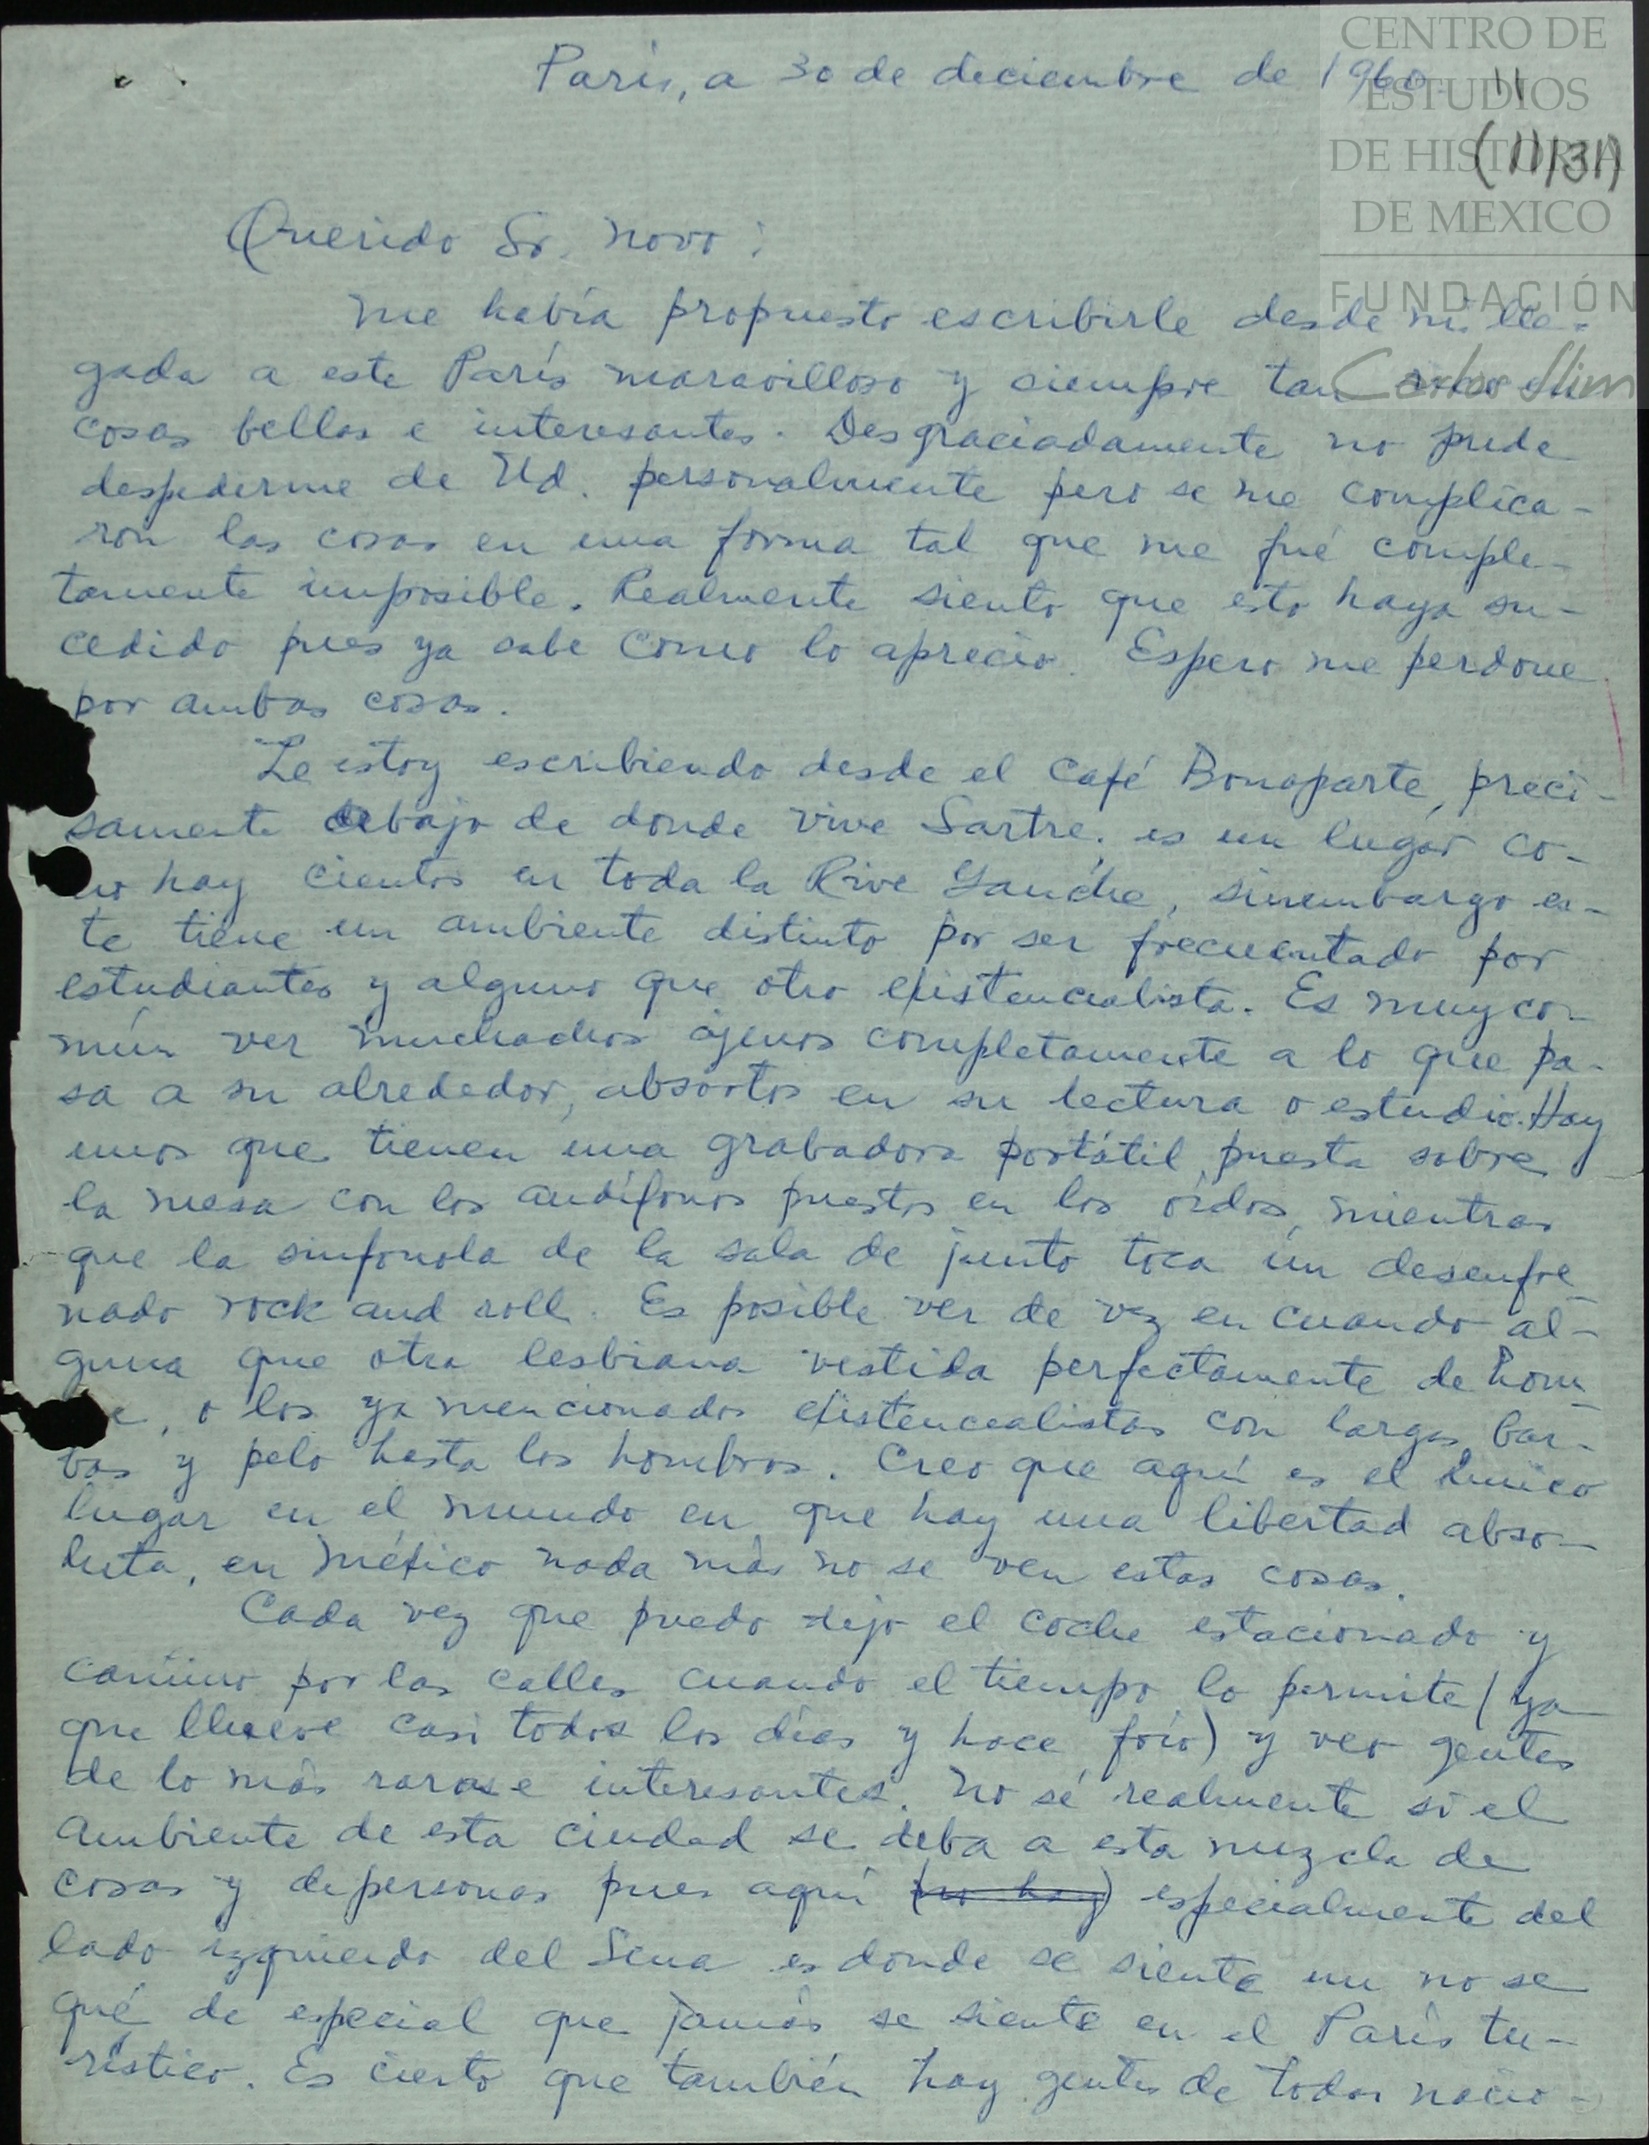 CENTRO DE
ESTUDIOS
DE HISTORIA
DE MEXICO
FUNDACIÓN
Carlos Slim
París, a 30 de diciembre de 1960. 11
(11/31)
Querido Sr. Novo:
Me había propuesto escribirle desde mi lle-
gada a este París maravilloso y siempre tan en
cosas bellas e interesantes. Desgraciadamente no pude
despederme de Ud. personalmente pero se me complica-
ron las cosas en una forma tal que me fué comple-
tamente imposible. Realmente siento que esto haya su-
cedido pues ya sabe como lo aprecio. Espero me perdone
por ambas cosas.
Le estoy escribiendo desde el Café Bonaparte, preci-
samente debajo de donde vive Sartre; es un lugar co-
mo hay cientos en toda la Rive Gauche, sinembargo es-
te tiene un ambiente distinto por ser frecuentado por
estudiantes y alguno que otro existencialista. Es muy co-
mún ver muchachos ajenos completamente a lo que pa-
sa a su alrededor, absortos en su lectura o estudio. Hay
unos que tienen una grabadora portátil puesta sobre
la mesa con los audífonos puestos en los oídos, mientras
que la sinfonola de la sala de junto toca un desenfre-
nado rock and roll. Es posible ver de vez en cuando al-
guna que otra lesbiana vestida perfectamente de hom-
e, o los ya mencionados existencealistas con largas bar-
bas y pelo hasta los hombros. Creo que aquí es el único
lugar en el mundo en que hay una libertad abso-
luta, en México nada más no se ven estas cosas.
Cada vez que puedo dejo el coche estacionado y
camino por las calles cuando el tiempo lo permite (ya
que llueve casi todos los días y hace frío) y veo gentes
de lo más raras e interesantes. No sé realmente si el
ambiente de esta ciudad se deba a esta mezcla de
cosas y de personas pues aquí (no hay) especialmente del
lado izquierdo del Sena es donde se siente un no se
qué de especial que jamás se siente en el París tu-
rístico. Es cierto que también hay gentes de todas nacio-